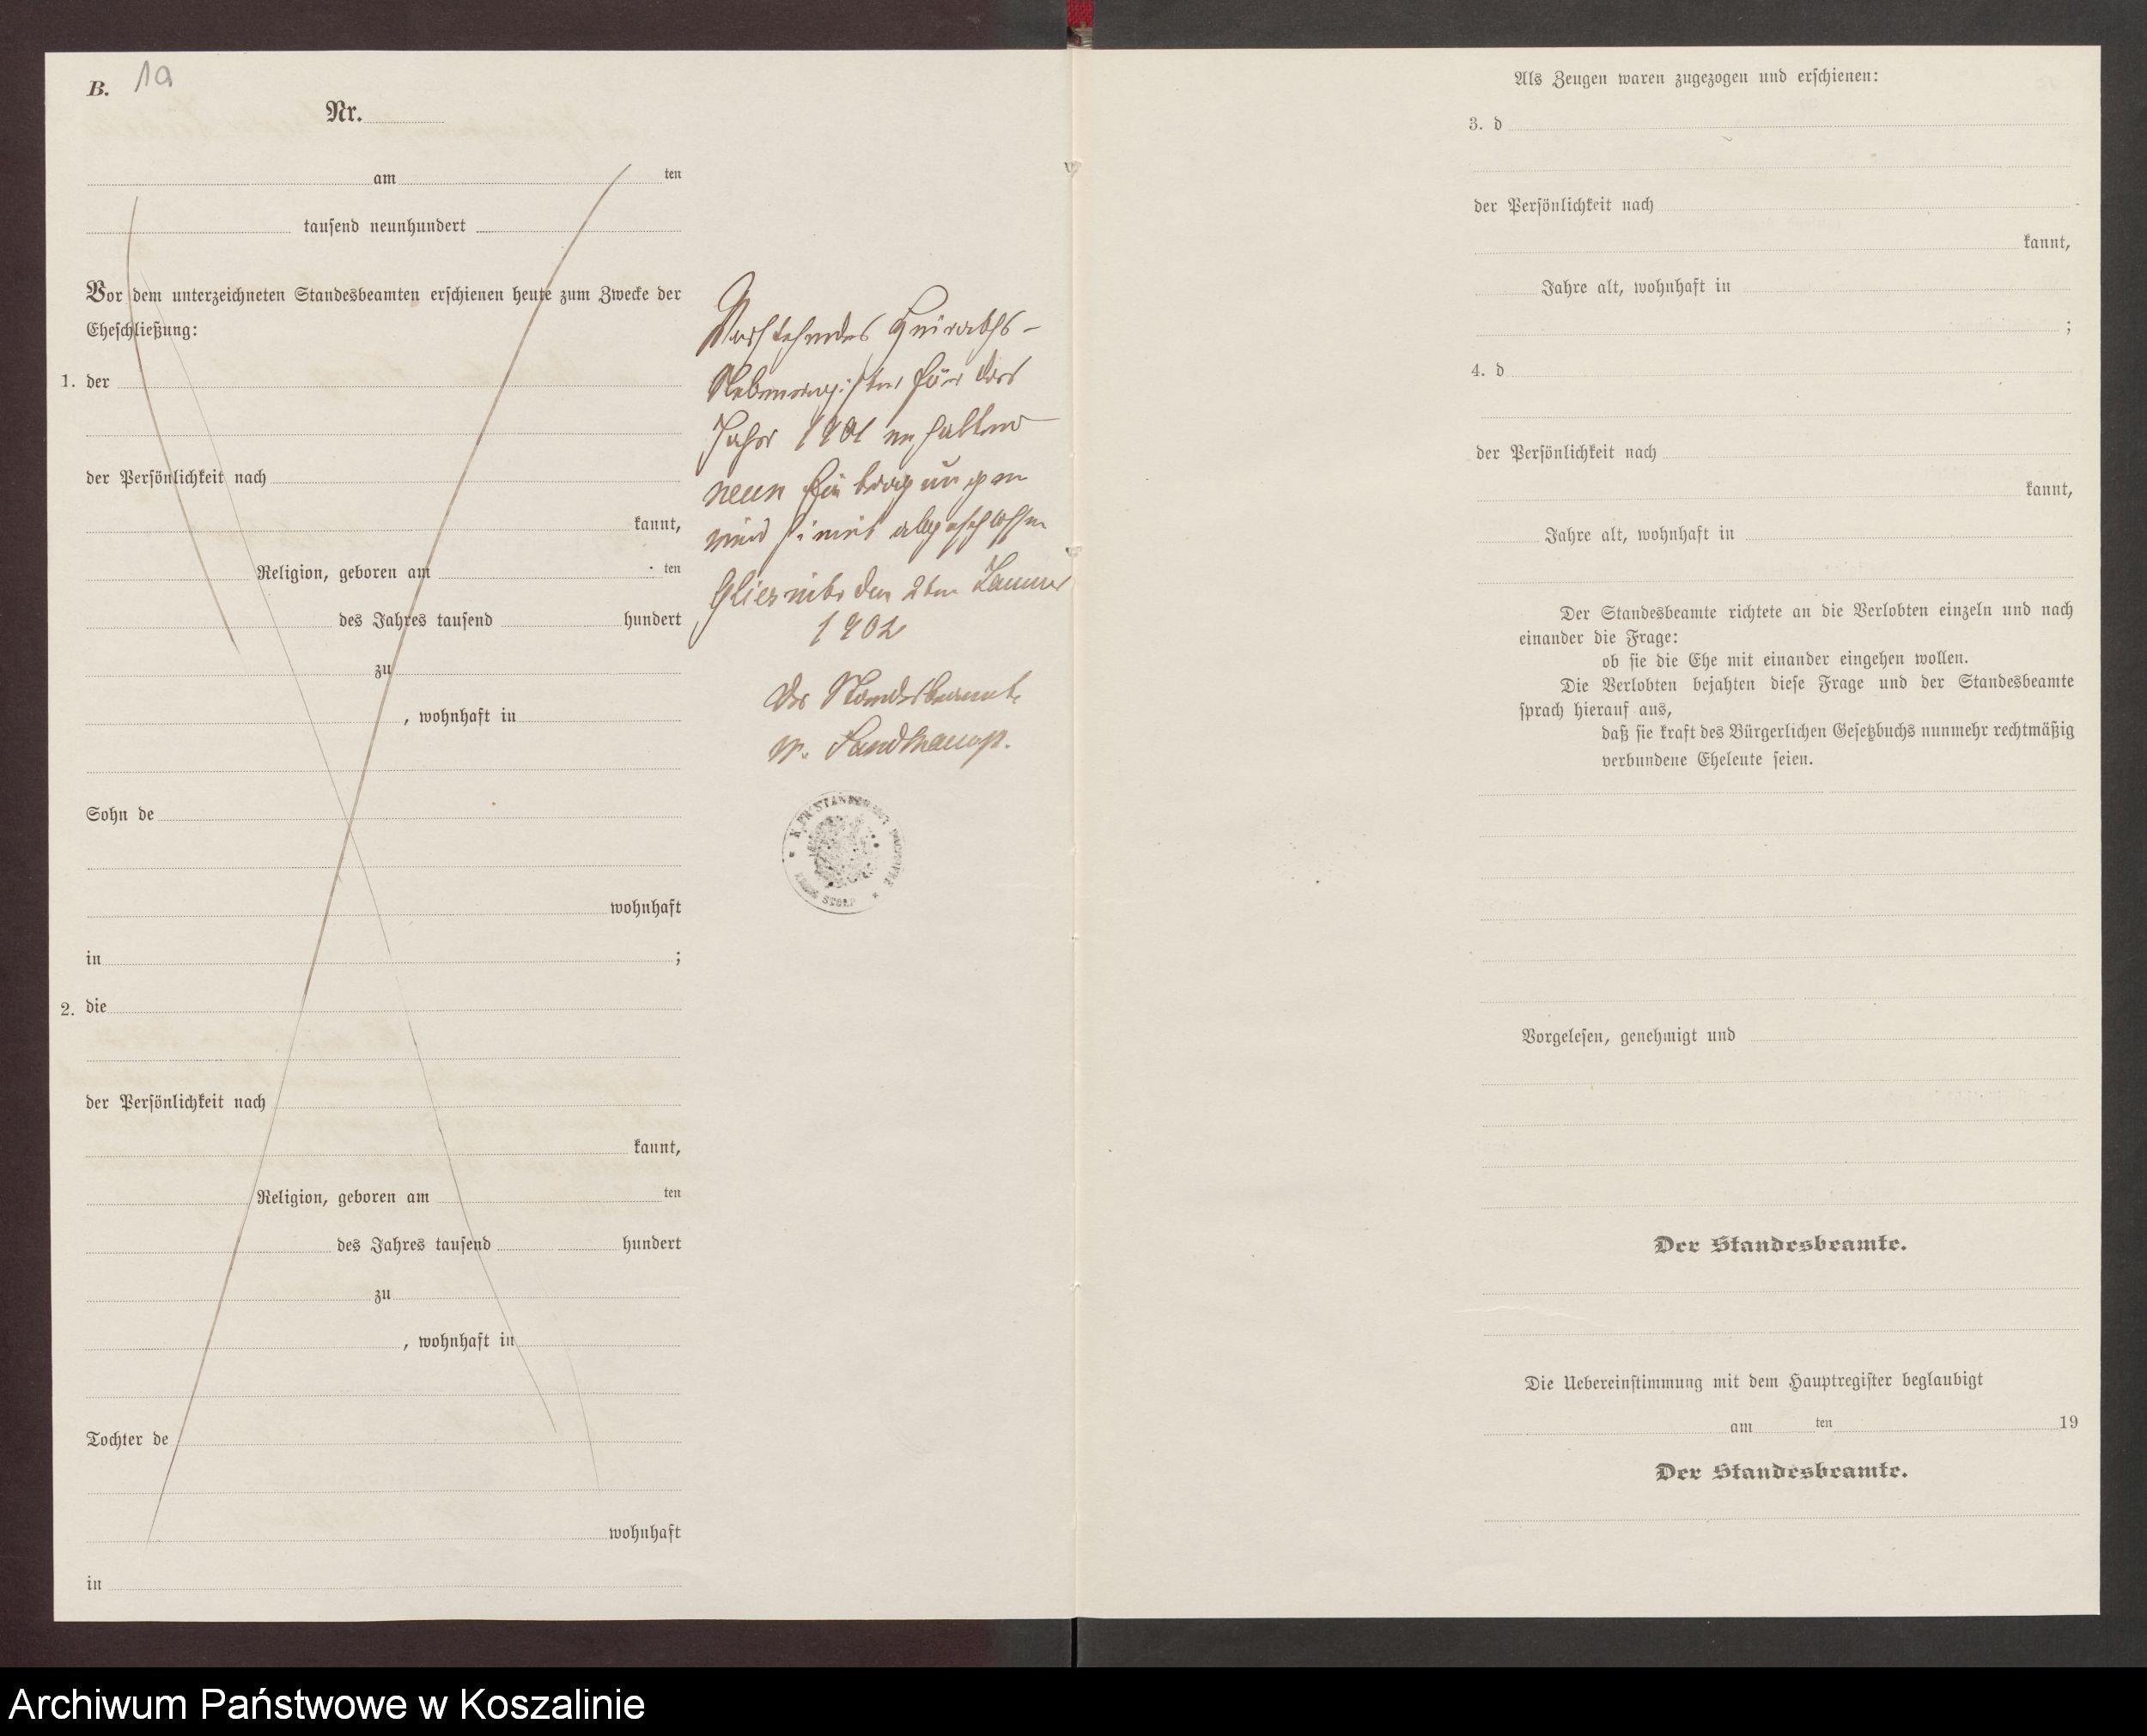 B. 10
Nr.
am ten
tausend neunhundert
Vor dem unterzeichneten Standesbeamten erschienen heute zum Zwecke der
Eheschließung:
1. der
der Persönlichkeit nach
kannt,
Religion, geboren am ten
des Jahres tausend hundert
zu
, wohnhaft in
Sohn de
wohnhaft
in ;
2. die
der Persönlichkeit nach
kannt,
Religion, geboren am ten
des Jahres tausend hundert
zu
, wohnhaft in
Tochter de
wohnhaft
in
Vorstehendes Heiraths-
Nebenregister für das
Jahr 1901 enthaltend
neun Eintragungen
wird hiermit abgeschlossen
den 2ten Januar
1902
Der Standesbeamte
v. Sandkamp.
STOLP
Als Zeugen waren zugezogen und erschienen:
3. d
der Persönlichkeit nach
kannt,
Jahre alt, wohnhaft in
;
4. d
der Persönlichkeit nach
kannt,
Jahre alt, wohnhaft in
Der Standesbeamte richtete an die Verlobten einzeln und nach
einander die Frage:
ob sie die Ehe mit einander eingehen wollen.
Die Verlobten bejahten diese Frage und der Standesbeamte
sprach hierauf aus,
daß sie kraft des Bürgerlichen Gesetzbuchs nunmehr rechtmäßig
verbundene Eheleute seien.
Vorgelesen, genehmigt und
Der Standesbeamte.
Die Uebereinstimmung mit dem Hauptregister beglaubigt
am ten 19
Der Standesbeamte.
Archiwum Państwowe w Koszalinie